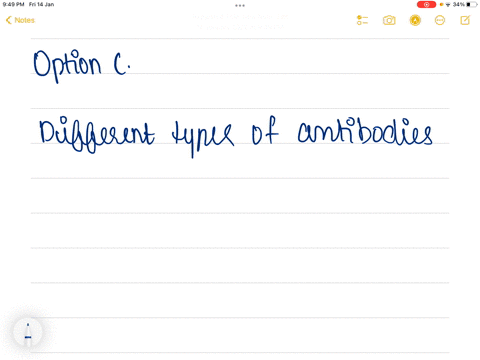 9:49 PM Fri 14 Jan
34%
Notes
Option C.
Different types of antibodies